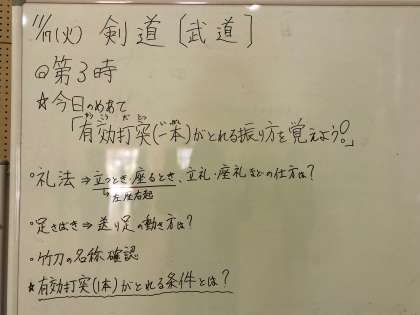 11/17(火) 剣道〔武道〕
◎第3時
☆今日のめあて
「有効打突(一本)がとれる振り方を覚えよう!」
◦礼法⇒立つとき・座るとき、立礼・座礼などの仕方は?
左座右起
◦足さばき⇒送り足の動き方は?
◦竹刀の名称確認
★有効打突(1本)がとれる条件とは?